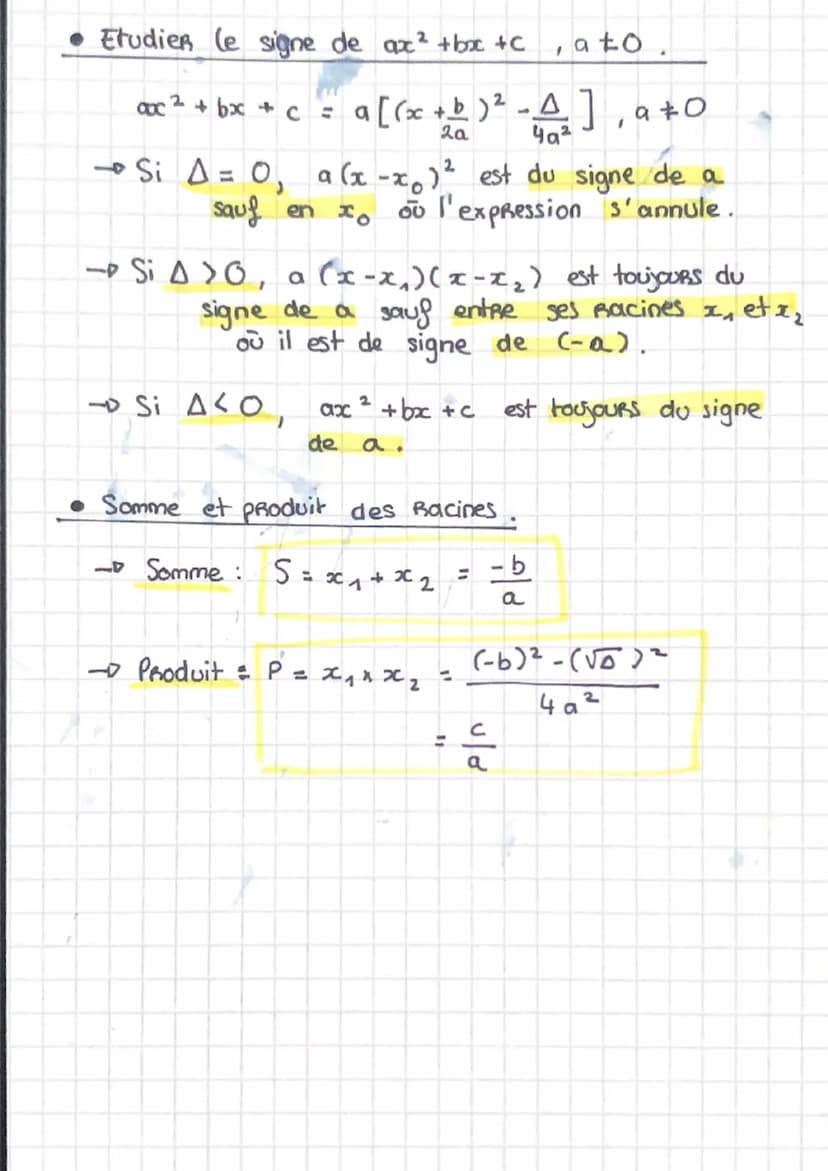 • Etudier le signe de ax² + bx + c , a ≠ 0 .
ax² + bx + c = a[(x + b/2a)² - Δ/4a²] , a ≠ 0
→ Si Δ = 0, a(x - x₀)² est du signe de a
sauf en x₀ où l'expression s'annule .
→ Si Δ > 0, a (x - x₁)(x - x₂) est toujours du
signe de a sauf entre ses racines x₁ et x₂
où il est de signe de (-a) .
→ Si Δ < 0, ax² + bx + c est toujours du signe
de a .
• Somme et produit des racines .
→ Somme : S = x₁ + x₂ = -b/a
→ Produit : P = x₁ × x₂ = (-b)² - (√Δ)²/4a²
= c/a